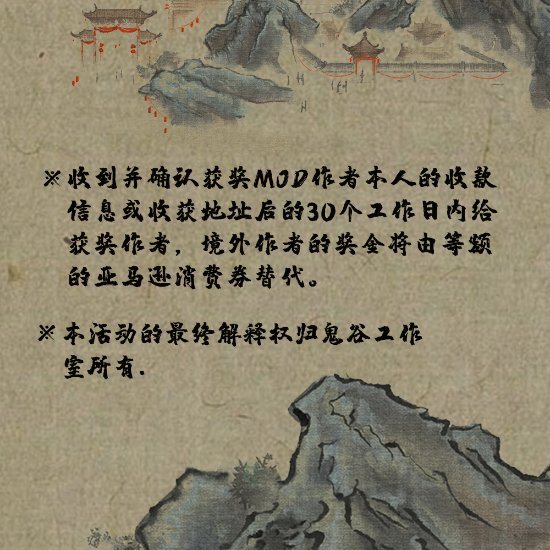 ※收到并确认获奖MOD作者本人的收款
信息或收获地址后的30个工作日内给
获奖作者，境外作者的奖金将由等额
的亚马逊消费券替代。
※本活动的最终解释权归鬼谷工作
室所有.